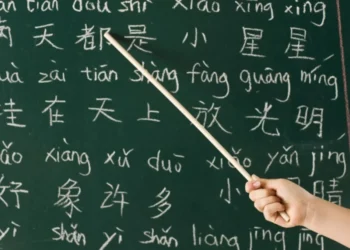 tiān dōu shì xiǎo xīng xīng
天都是小星星
zài tiān shàng fàng guāng míng
挂在天上放光明
xiàng xǔ duō xiǎo yǎn jīng
好象许多小 睛
shǎn yì shǎn liàng jīng jīng